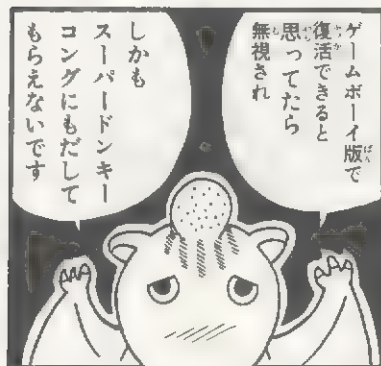 ゲームボーイ版で
復活できると
思ってたら
無視され
しかも
スーパードンキー
コングにもだして
もらえないです